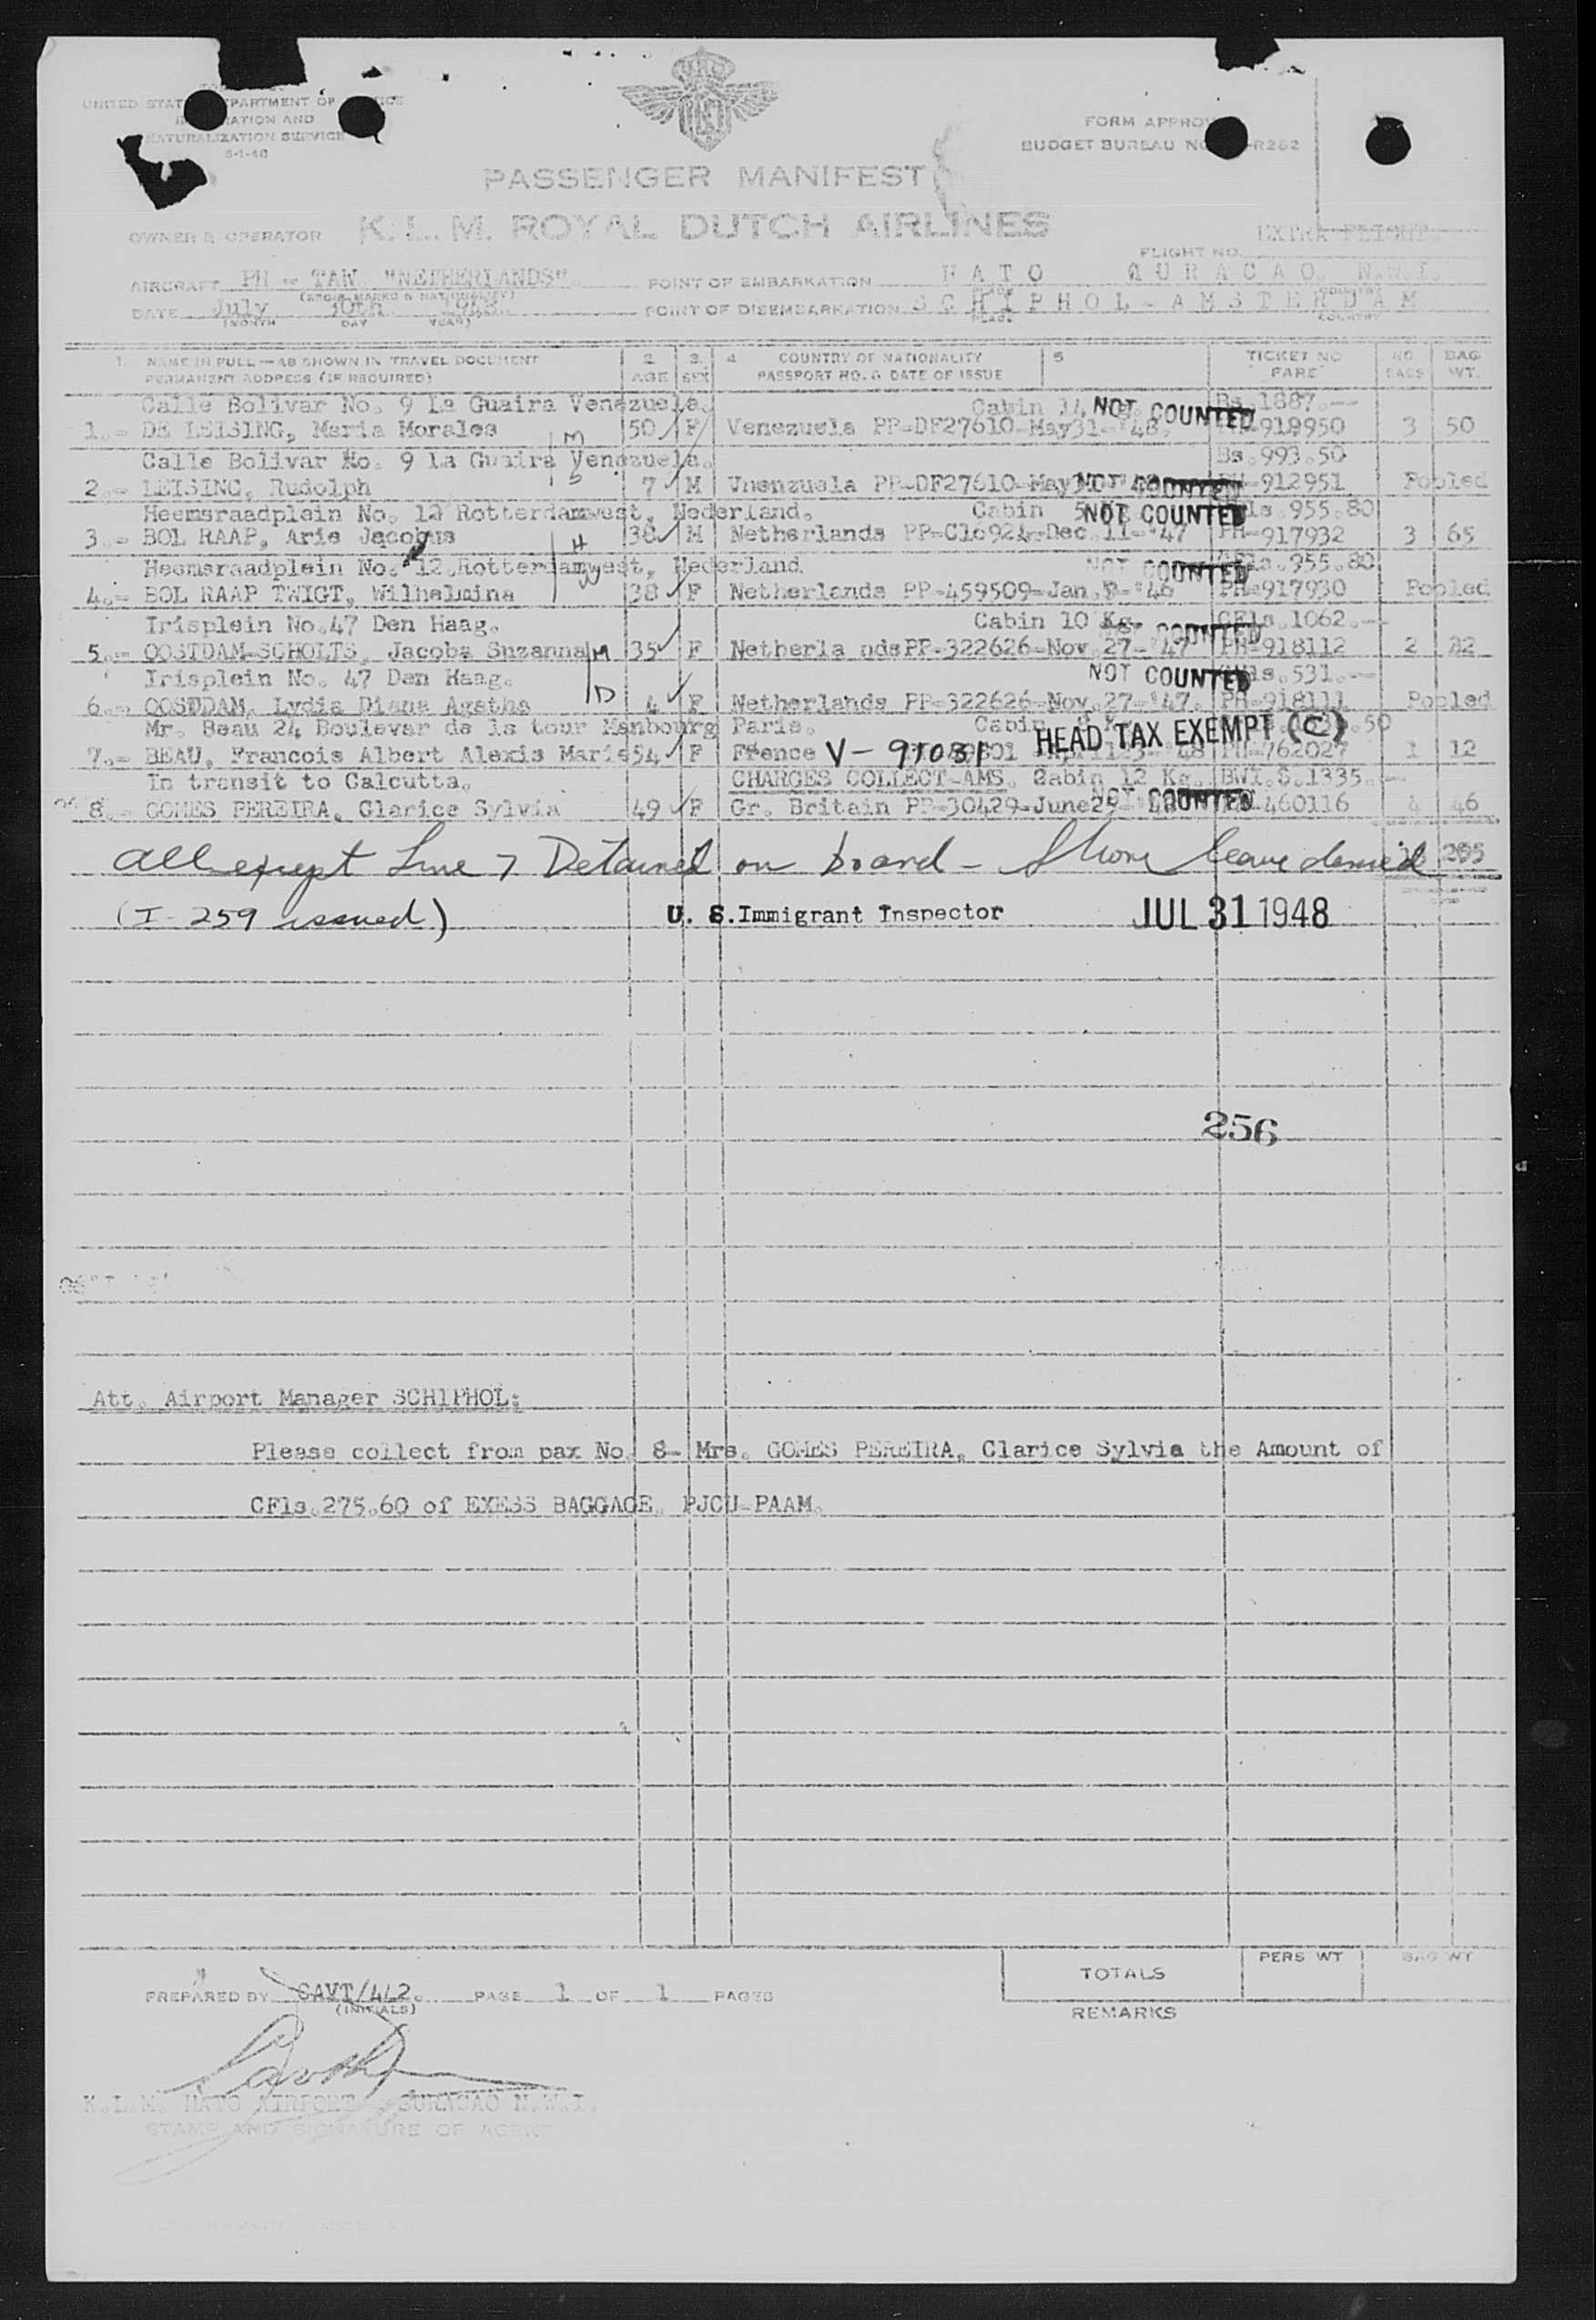 UNITED STATES DEPARTMENT OF JUSTICE
IMMIGRATION AND
NATURALIZATION SERVICE
FORM APPROVED
BUDGET BUREAU NO. R262
PASSENGER MANIFEST
OWNER & OPERATOR K.L.M. ROYAL DUTCH AIRLINES
EXTRA FLIGHT.
FLIGHT NO.
AIRCRAFT PH - TAW "NETHERLANDS". POINT OF EMBARKATION H A T O C U R A C A O. N.W.I.
(REGIS. MARKS & NATIONALITY) PLACE COUNTRY
DATE July 30th. POINT OF DISEMBARKATION S C H I P H O L - A M S T E R D A M
(MONTH DAY YEAR) PLACE COUNTRY
1 NAME IN FULL — AS SHOWN IN TRAVEL DOCUMENT 2 3 4 COUNTRY OF NATIONALITY 5 TICKET NO NO BAG
PERMANENT ADDRESS (IF REQUIRED) AGE SEX PASSPORT NO. & DATE OF ISSUE FARE BAGS WT.
Calle Bolivar No. 9 La Guaira Venezuela. Cabin 14 NOT COUNTED Bs.1887.—
1.- DE LEISING, Maria Morales M 50 F Venezuela PP-DF27610-May31-'48. 912950 3 50
Calle Bolivar No. 9 La Guaira Venezuela. Bs.993.50
2.- LEISING, Rudolph S 7 M Vnenzuela PP-DF27610-May31 NOT COUNTED PH-912951 Pooled
Heemsraadplein No. 12 Rotterdamwest, Nederland. Cabin 5 NOT COUNTED ls.955.80
3.- BOL RAAP, Arie Jacobus H 38 M Netherlands PP-C16924-Dec.11-'47 PH-917932 3 65
Heemsraadplein No. 12.Rotterdamwest, Nederland NOT COUNTED ls.955.80
4.- BOL RAAP TWIGT, Wilhelmina W 38 F Netherlands PP-459509-Jan. PH-917930 Pooled
Irisplein No.47 Den Haag. Cabin 10 Kg. COUNTED CFls.1062.—
5.- OOSTDAM-SCHOLTS, Jacoba Suzanna M 35 F Netherla nds PP-322626-Nov.27-'47 PH-918112 2 42
Irisplein No. 47 Den Haag. NOT COUNTED ls.531.—
6.- OOSTDAM, Lydia Diana Agatha D 4 F Netherlands PP-322626-Nov.27-'47. PH-918111 Pooled
Mr. Beau 24 Boulevar de la tour Manbourg Paris. Cabin HEAD TAX EXEMPT (C) .50
7.- BEAU, Francois Albert Alexis Marie 54 F France V-91081 PH-762027 1 12
In transit to Calcutta. CHARGES COLLECT-AMS. Cabin 12 Kg. BWI.$.1335.—
8.- GOMES PEREIRA, Clarice Sylvia 49 F Gr. Britain PP-30429-June25- NOT COUNTED 460116 4 46
all except Line 7 Detained on board - Shore leave denied
(I-259 issued) U. S. Immigrant Inspector JUL 31 1948
256
Att. Airport Manager SCHIPHOL:
Please collect from pax No. 8- Mrs. GOMES PEREIRA, Clarice Sylvia the Amount of
CFls.275.60 of EXESS BAGGAGE. PJCU-PAAM.
TOTALS PERS WT BAG WT
PREPARED BY SAVT/442. PAGE 1 OF 1 PAGES
(INITIALS)
REMARKS
K.L.M. HATO AIRPORT CURACAO N.W.I.
STAMP AND SIGNATURE OF AGENT